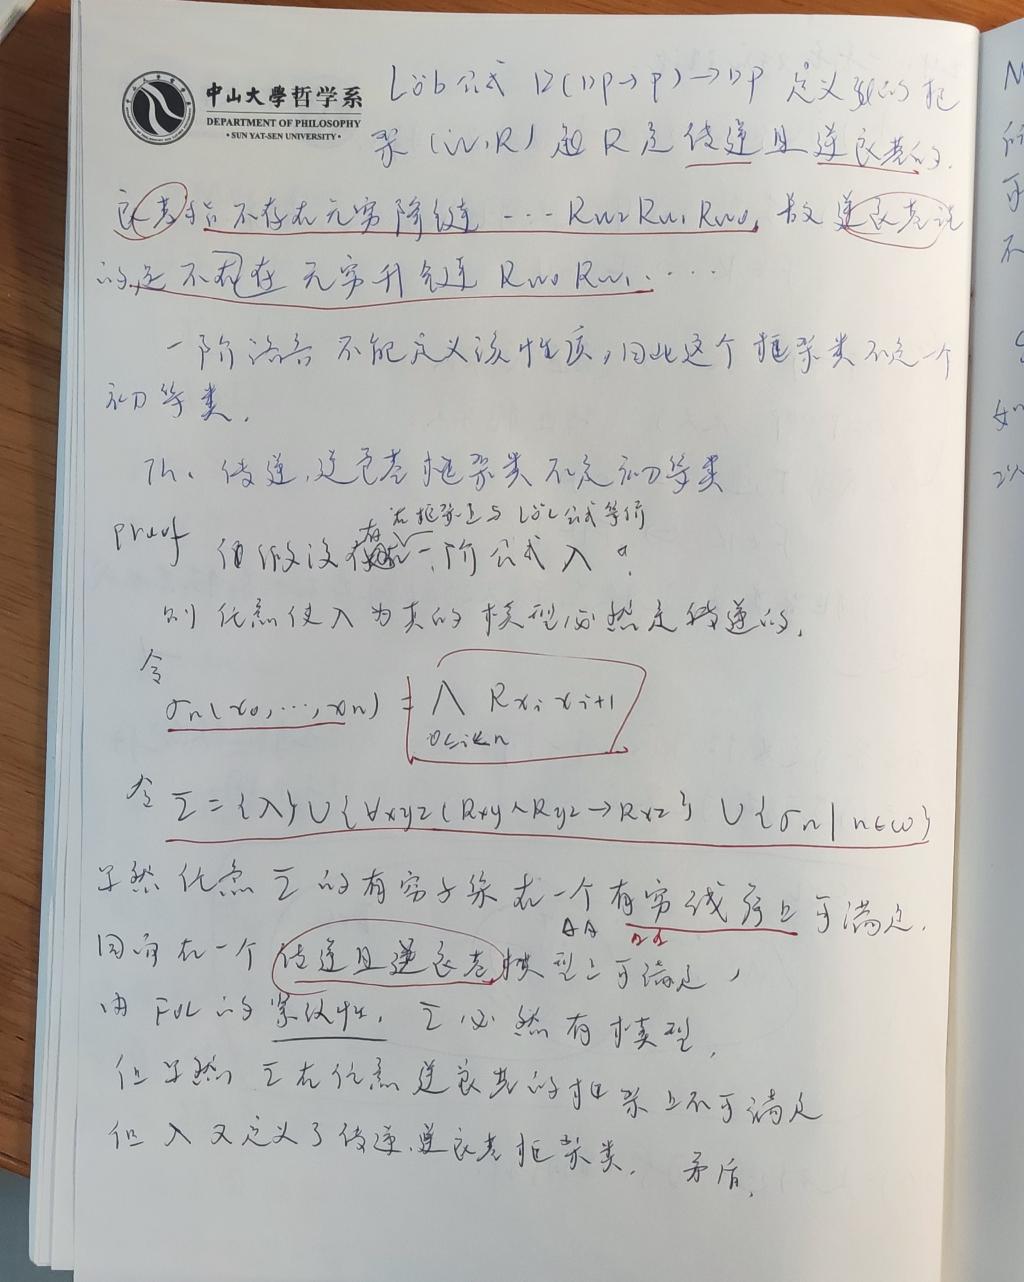 中山大學哲学系
DEPARTMENT OF PHILOSOPHY
·SUN YAT-SEN UNIVERSITY·
Löb公式 □(□p→p)→□p 定义的框
架 (W,R) R是传递且逆良基的.
良基指不存在无穷降链 ··· Rw2 Rw1 Rw0, 故逆良基说
的是不存在无穷升链 Rw0 Rw1 ····
一阶语言不能定义该性质,因此这个框架类不是一个
初等类.
Th. 传递,逆良基框架类不是初等类
在框架上与Löb公式等价
proof 假设有一阶公式 λ
则任意使λ为真的模型必然是传递的.
令
σn(x0,···,xn) = ∧ Rxi xi+1
0≤i<n
令 Σ = {λ}∪{∀xyz(Rxy∧Ryz→Rxz}∪{σn|n∈ω}
显然任意Σ的有穷子集在一个有穷线序上可满足.
因而在一个传递且逆良基模型上可满足,
由FOL的紧致性, Σ必然有模型,
但显然Σ在任意逆良基的框架上不可满足
但λ又定义了传递、逆良基框架类. 矛盾.